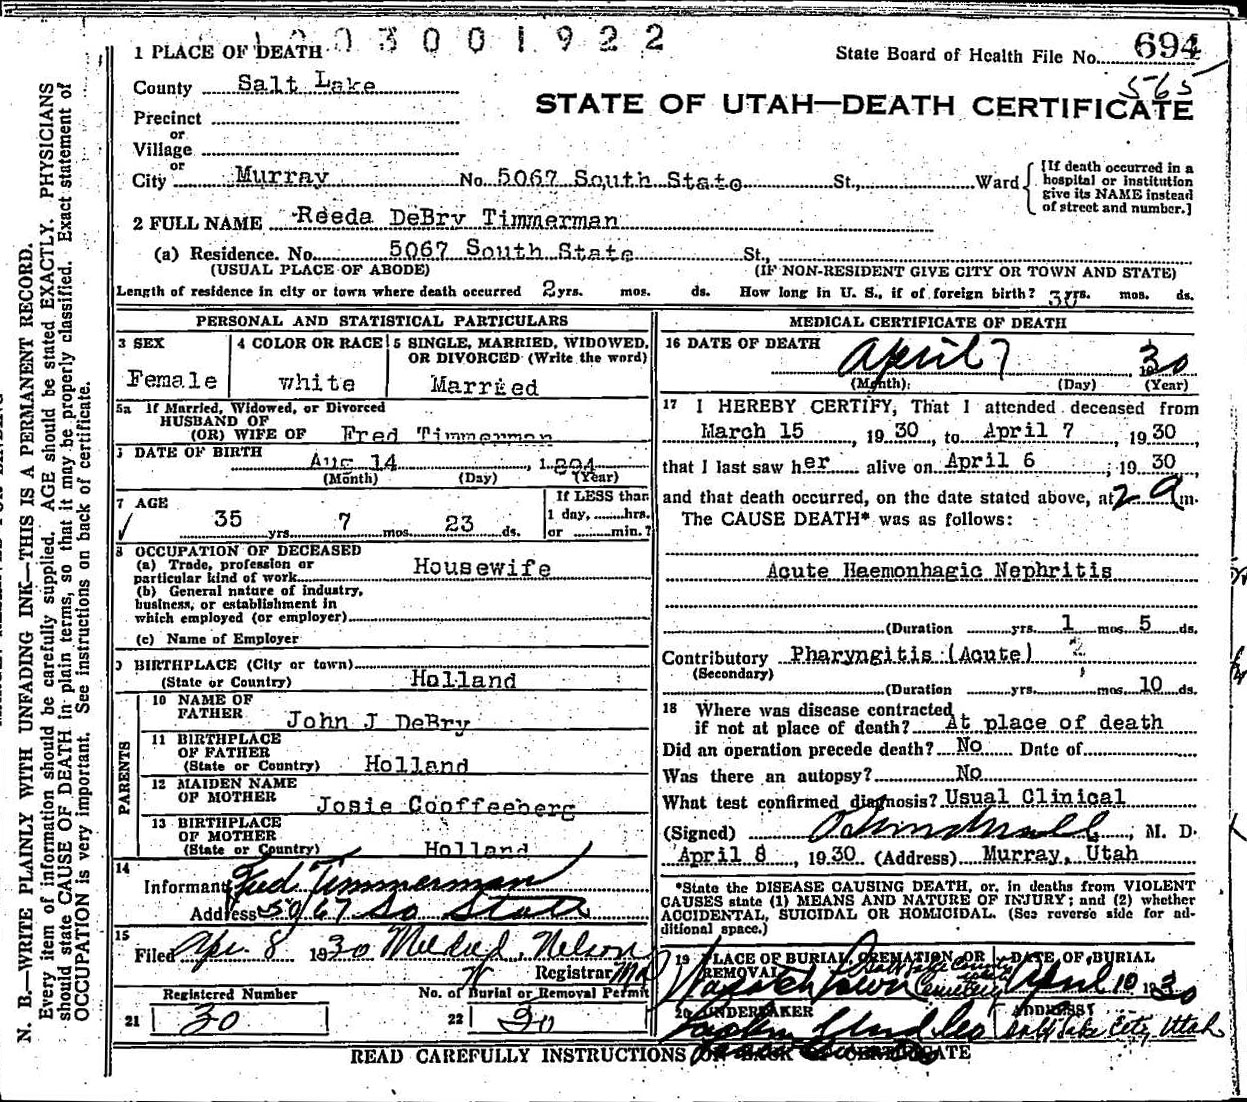 1 PLACE OF DEATH
3001922
State Board of Health File No. 694
565
County Salt Lake
STATE OF UTAH—DEATH CERTIFICATE
Precinct
or
Village
or
City Murray No. 5067 South State St., Ward
[If death occurred in a
hospital or institution
give its NAME instead
of street and number.]
2 FULL NAME Reeda DeBry Timmerman
(a) Residence. No. 5067 South State St.,
(USUAL PLACE OF ABODE) (IF NON-RESIDENT GIVE CITY OR TOWN AND STATE)
Length of residence in city or town where death occurred 2 yrs. mos. ds. How long in U. S., if of foreign birth? yrs. mos. ds.
PERSONAL AND STATISTICAL PARTICULARS
3 SEX
Female
4 COLOR OR RACE
white
5 SINGLE, MARRIED, WIDOWED,
OR DIVORCED (Write the word)
Married
5a If Married, Widowed, or Divorced
HUSBAND OF
(OR) WIFE OF Fred Timmerman
DATE OF BIRTH
Aug 14, 1894
(Month) (Day) (Year)
7 AGE
35 yrs. 7 mos. 23 ds.
If LESS than
1 day, hrs.
or min.?
8 OCCUPATION OF DECEASED
(a) Trade, profession or
particular kind of work Housewife
(b) General nature of industry,
business, or establishment in
which employed (or employer)
(c) Name of Employer
9 BIRTHPLACE (City or town)
(State or Country) Holland
PARENTS
10 NAME OF
FATHER John J DeBry
11 BIRTHPLACE
OF FATHER
(State or Country) Holland
12 MAIDEN NAME
OF MOTHER Josie Cooffeeberg
13 BIRTHPLACE
OF MOTHER
(State or Country) Holland
14
Informant Fred Timmerman
Address 5067 So State
15
Filed Apr. 8 1930 Mildred Nelson
Registrar
Registered Number
21 30
No. of Burial or Removal Permit
22 30
MEDICAL CERTIFICATE OF DEATH
16 DATE OF DEATH
April 7 30
(Month) (Day) (Year)
17 I HEREBY CERTIFY, That I attended deceased from
March 15, 1930, to April 7, 1930,
that I last saw her alive on April 6, 1930
and that death occurred, on the date stated above, at 2 a m.
The CAUSE DEATH* was as follows:
Acute Haemonhagic Nephritis
(Duration yrs. 1 mos. 5 ds.
Contributory Pharyngitis (Acute)
(Secondary)
(Duration yrs. mos. 10 ds.
18 Where was disease contracted
if not at place of death? At place of death
Did an operation precede death? No Date of
Was there an autopsy? No
What test confirmed diagnosis? Usual Clinical
(Signed) , M. D.
April 8, 1930 (Address) Murray, Utah
*State the DISEASE CAUSING DEATH, or, in deaths from VIOLENT
CAUSES state (1) MEANS AND NATURE OF INJURY; and (2) whether
ACCIDENTAL, SUICIDAL OR HOMICIDAL. (See reverse side for ad-
ditional space.)
19 PLACE OF BURIAL, CREMATION, OR
REMOVAL
Wasatch Lawn Salt Lake County
Cemetery
DATE OF BURIAL
April 10 1930
20 UNDERTAKER
ADDRESS
Salt Lake City, Utah
READ CAREFULLY INSTRUCTIONS ON BACK OF CERTIFICATE
N. B.—WRITE PLAINLY WITH UNFADING INK—THIS IS A PERMANENT RECORD.
Every item of information should be carefully supplied. AGE should be stated EXACTLY. PHYSICIANS
should state CAUSE OF DEATH in plain terms, so that it may be properly classified. Exact statement of
OCCUPATION is very important. See instructions on back of certificate.